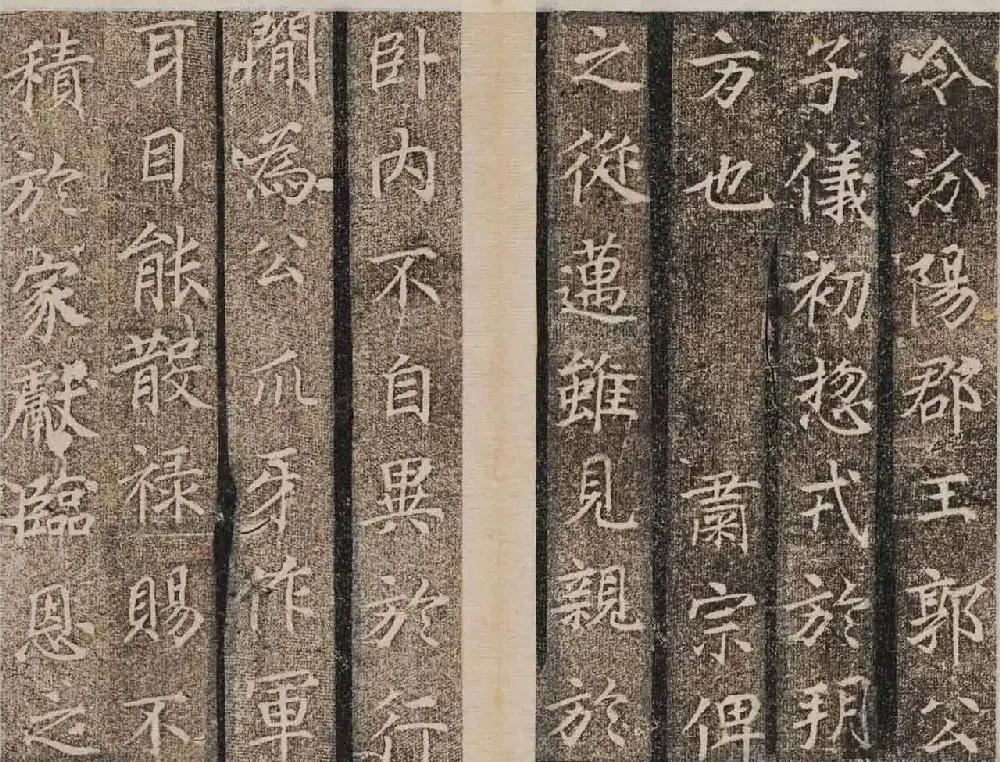 令汾陽郡王郭公
子儀初揔戎於朔
方也 肅宗俾
之從邁雖見親於
臥內不自異於行
間為公爪牙作軍
耳目能散祿賜不
積於家獻臨恩之